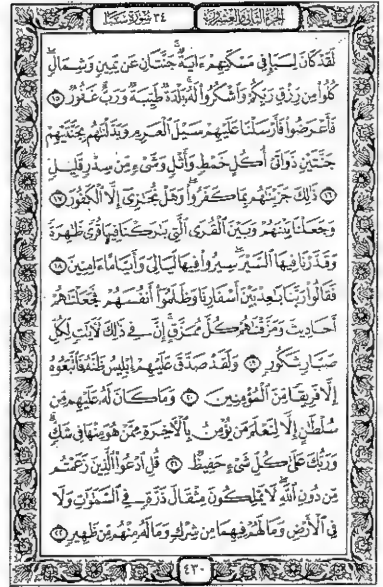 الجزء الثاني والعشرون
٣٤ سورة سبإ
لَقَدْ كَانَ لِسَبَإٍ فِى مَسْكَنِهِمْ ءَايَةٌ ۖ جَنَّتَانِ عَن يَمِينٍ وَشِمَالٍ ۖ
كُلُوا۟ مِن رِّزْقِ رَبِّكُمْ وَٱشْكُرُوا۟ لَهُۥ ۚ بَلْدَةٌ طَيِّبَةٌ وَرَبٌّ غَفُورٌ ١٥
فَأَعْرَضُوا۟ فَأَرْسَلْنَا عَلَيْهِمْ سَيْلَ ٱلْعَرِمِ وَبَدَّلْنَٰهُم بِجَنَّتَيْهِمْ
جَنَّتَيْنِ ذَوَاتَىْ أُكُلٍ خَمْطٍ وَأَثْلٍ وَشَىْءٍ مِّن سِدْرٍ قَلِيلٍ
١٦ ذَٰلِكَ جَزَيْنَٰهُم بِمَا كَفَرُوا۟ ۖ وَهَلْ نُجَٰزِىٓ إِلَّا ٱلْكَفُورَ ١٧
وَجَعَلْنَا بَيْنَهُمْ وَبَيْنَ ٱلْقُرَى ٱلَّتِى بَٰرَكْنَا فِيهَا قُرًى ظَٰهِرَةً
وَقَدَّرْنَا فِيهَا ٱلسَّيْرَ ۖ سِيرُوا۟ فِيهَا لَيَالِىَ وَأَيَّامًا ءَامِنِينَ ١٨
فَقَالُوا۟ رَبَّنَا بَٰعِدْ بَيْنَ أَسْفَارِنَا وَظَلَمُوٓا۟ أَنفُسَهُمْ فَجَعَلْنَٰهُمْ
أَحَادِيثَ وَمَزَّقْنَٰهُمْ كُلَّ مُمَزَّقٍ ۚ إِنَّ فِى ذَٰلِكَ لَءَايَٰتٍ لِّكُلِّ
صَبَّارٍ شَكُورٍ ١٩ وَلَقَدْ صَدَّقَ عَلَيْهِمْ إِبْلِيسُ ظَنَّهُۥ فَٱتَّبَعُوهُ
إِلَّا فَرِيقًا مِّنَ ٱلْمُؤْمِنِينَ ٢٠ وَمَا كَانَ لَهُۥ عَلَيْهِم مِّن
سُلْطَٰنٍ إِلَّا لِنَعْلَمَ مَن يُؤْمِنُ بِٱلْءَاخِرَةِ مِمَّنْ هُوَ مِنْهَا فِى شَكٍّ ۗ
وَرَبُّكَ عَلَىٰ كُلِّ شَىْءٍ حَفِيظٌ ٢١ قُلِ ٱدْعُوا۟ ٱلَّذِينَ زَعَمْتُم
مِّن دُونِ ٱللَّهِ ۖ لَا يَمْلِكُونَ مِثْقَالَ ذَرَّةٍ فِى ٱلسَّمَٰوَٰتِ وَلَا
فِى ٱلْأَرْضِ وَمَا لَهُمْ فِيهِمَا مِن شِرْكٍ وَمَا لَهُۥ مِنْهُم مِّن ظَهِيرٍ ٢٢
٤٣٠